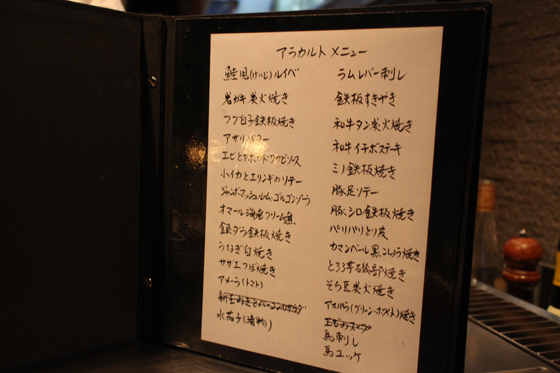 アラカルト メニュー
鮭児(けいじ)ルイベ
岩ガキ 炭火焼き
フグ白子鉄板焼き
アサリバター
エビとアボカドワサビソース
小イカとエリンギのソテー
ジャンボマッシュルム、ゴルゴンゾーラ
オマール海老クリーム煮
銀ダラ鉄板焼き
うなぎ白焼き
サザエつぼ焼き
アメーラ(トマト)
新玉ねぎとベーコンの
水茄子(漬物)
ラムレバー刺し
鉄板すきやき
和牛タン炭火焼き
和牛イチボステーキ
ミノ鉄板焼き
豚足ソテー
豚シロ鉄板焼き
パリパリとり皮
カマンベール黒こしょう焼き
とろろ芋お好み焼き
そら豆炭火焼き
アスパラ(グリーン・ホワイト)焼き
馬刺し
馬ユッケ